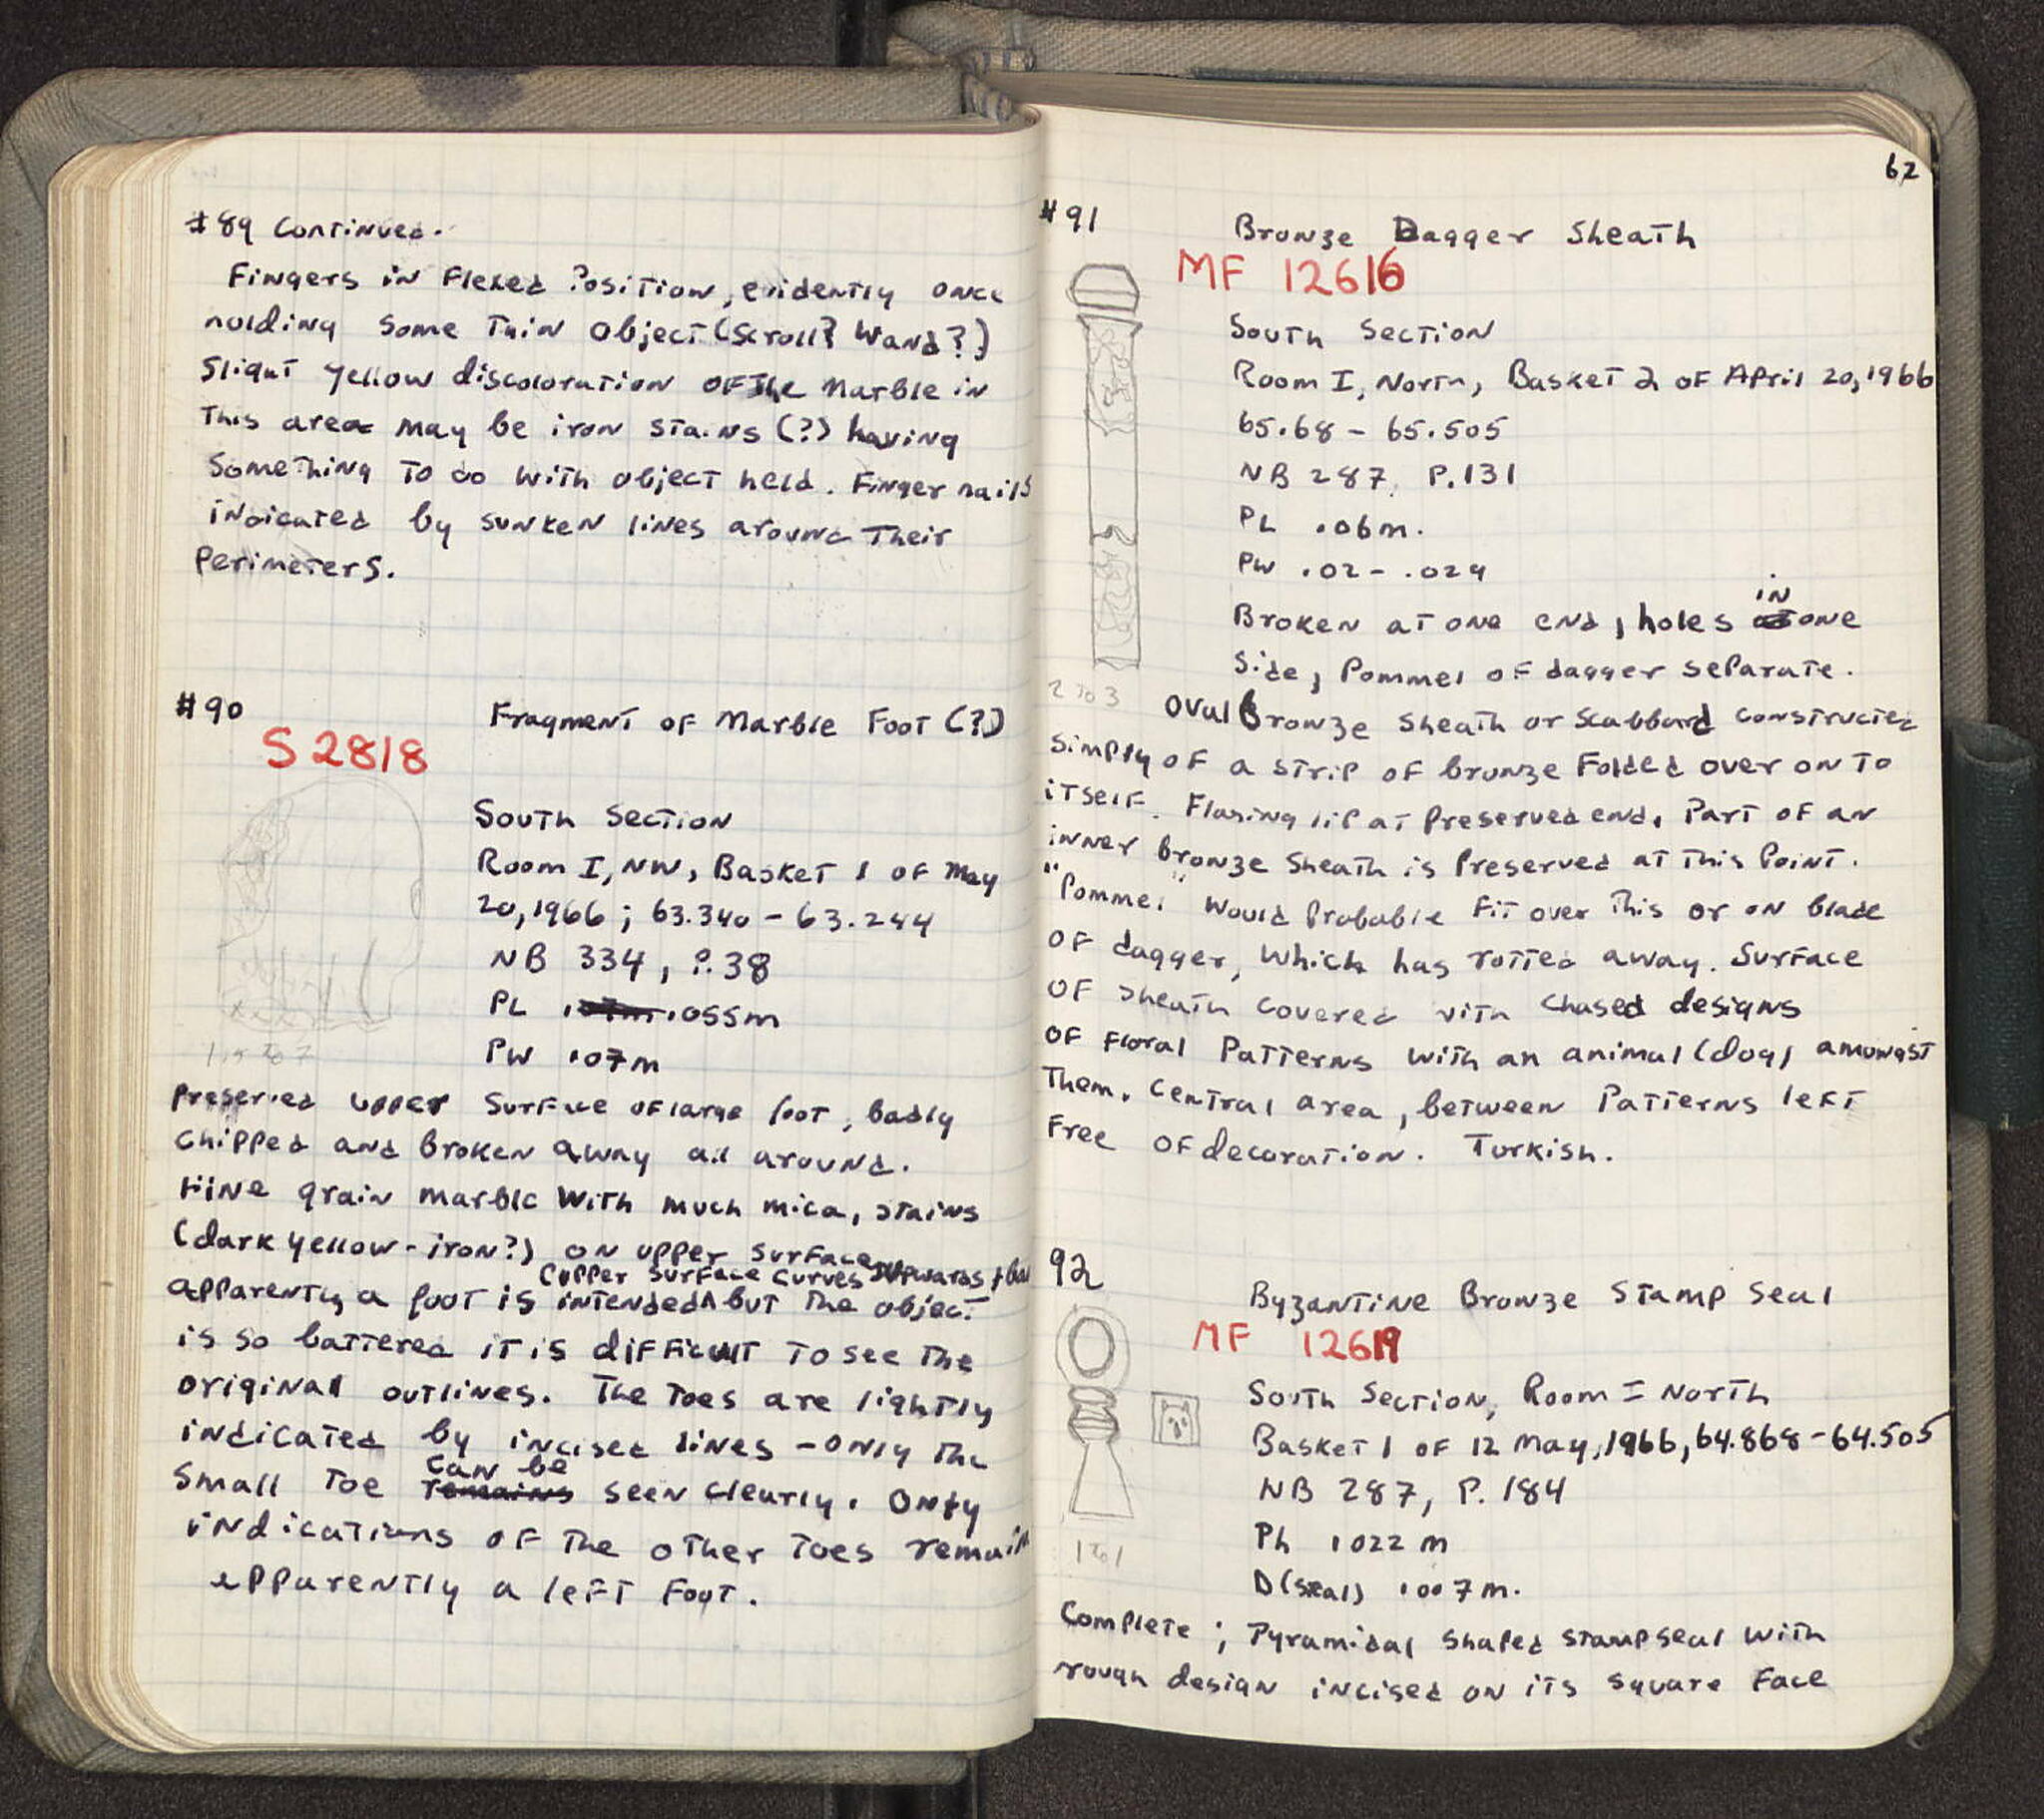 #89 Continued.
Fingers in Flexed Position, evidently once
holding some Thin object (scroll? Wand?)
Slight yellow discoloration of the Marble in
This area may be iron stains (?) having
Something To do with object held. Finger nails
indicated by sunken lines around Their
Perimeters.
#90
Fragment of Marble Foot (?)
S 2818
South Section
Room I, NW, Basket 1 of May
20, 1966; 63.340 - 63.244
NB 334, P. 38
PL .055m
PW .07m
1.5 To 7
Preserved upper surface of large foot, badly
chipped and broken away all around.
Fine grain marble with much mica, stains
(dark yellow - iron?) on upper surface
(upper surface curves upwards
apparently a foot is intended ^ but The object
is so battered it is difficult to see the
original outlines. The Toes are lightly
indicated by incised lines - only The
can be
small Toe remains seen clearly. Only
indications of The other Toes remain
apparently a left Foot.
62
#91
Bronze Dagger Sheath
MF 12616
South Section
Room I, North, Basket 2 of April 20, 1966
65.68 - 65.505
NB 287, P. 131
PL .06m.
PW .02 - .024
in
Broken at one end, holes one
side, Pommel of dagger separate.
2 To 3
Oval Bronze Sheath or Scabbard constructed
Simply of a strip of bronze Folded over on To
itself. Flaring lip at Preserved end. Part of an
inner bronze sheath is Preserved at This Point.
"Pommel" Would Probable Fit over This or on blade
of dagger, which has rotted away. Surface
of sheath covered with chased designs
of Floral Patterns with an animal (dog) amongst
Them. Central area, between Patterns left
Free of decoration. Turkish.
92
Byzantine Bronze Stamp Seal
MF 12619
South Section, Room I North
Basket 1 of 12 May, 1966, 64.868 - 64.505
NB 287, P. 184
Ph .022 m
D(seal) .007 m.
1 To 1
Complete; Pyramidal shaped stamp seal with
rough design incised on its square Face